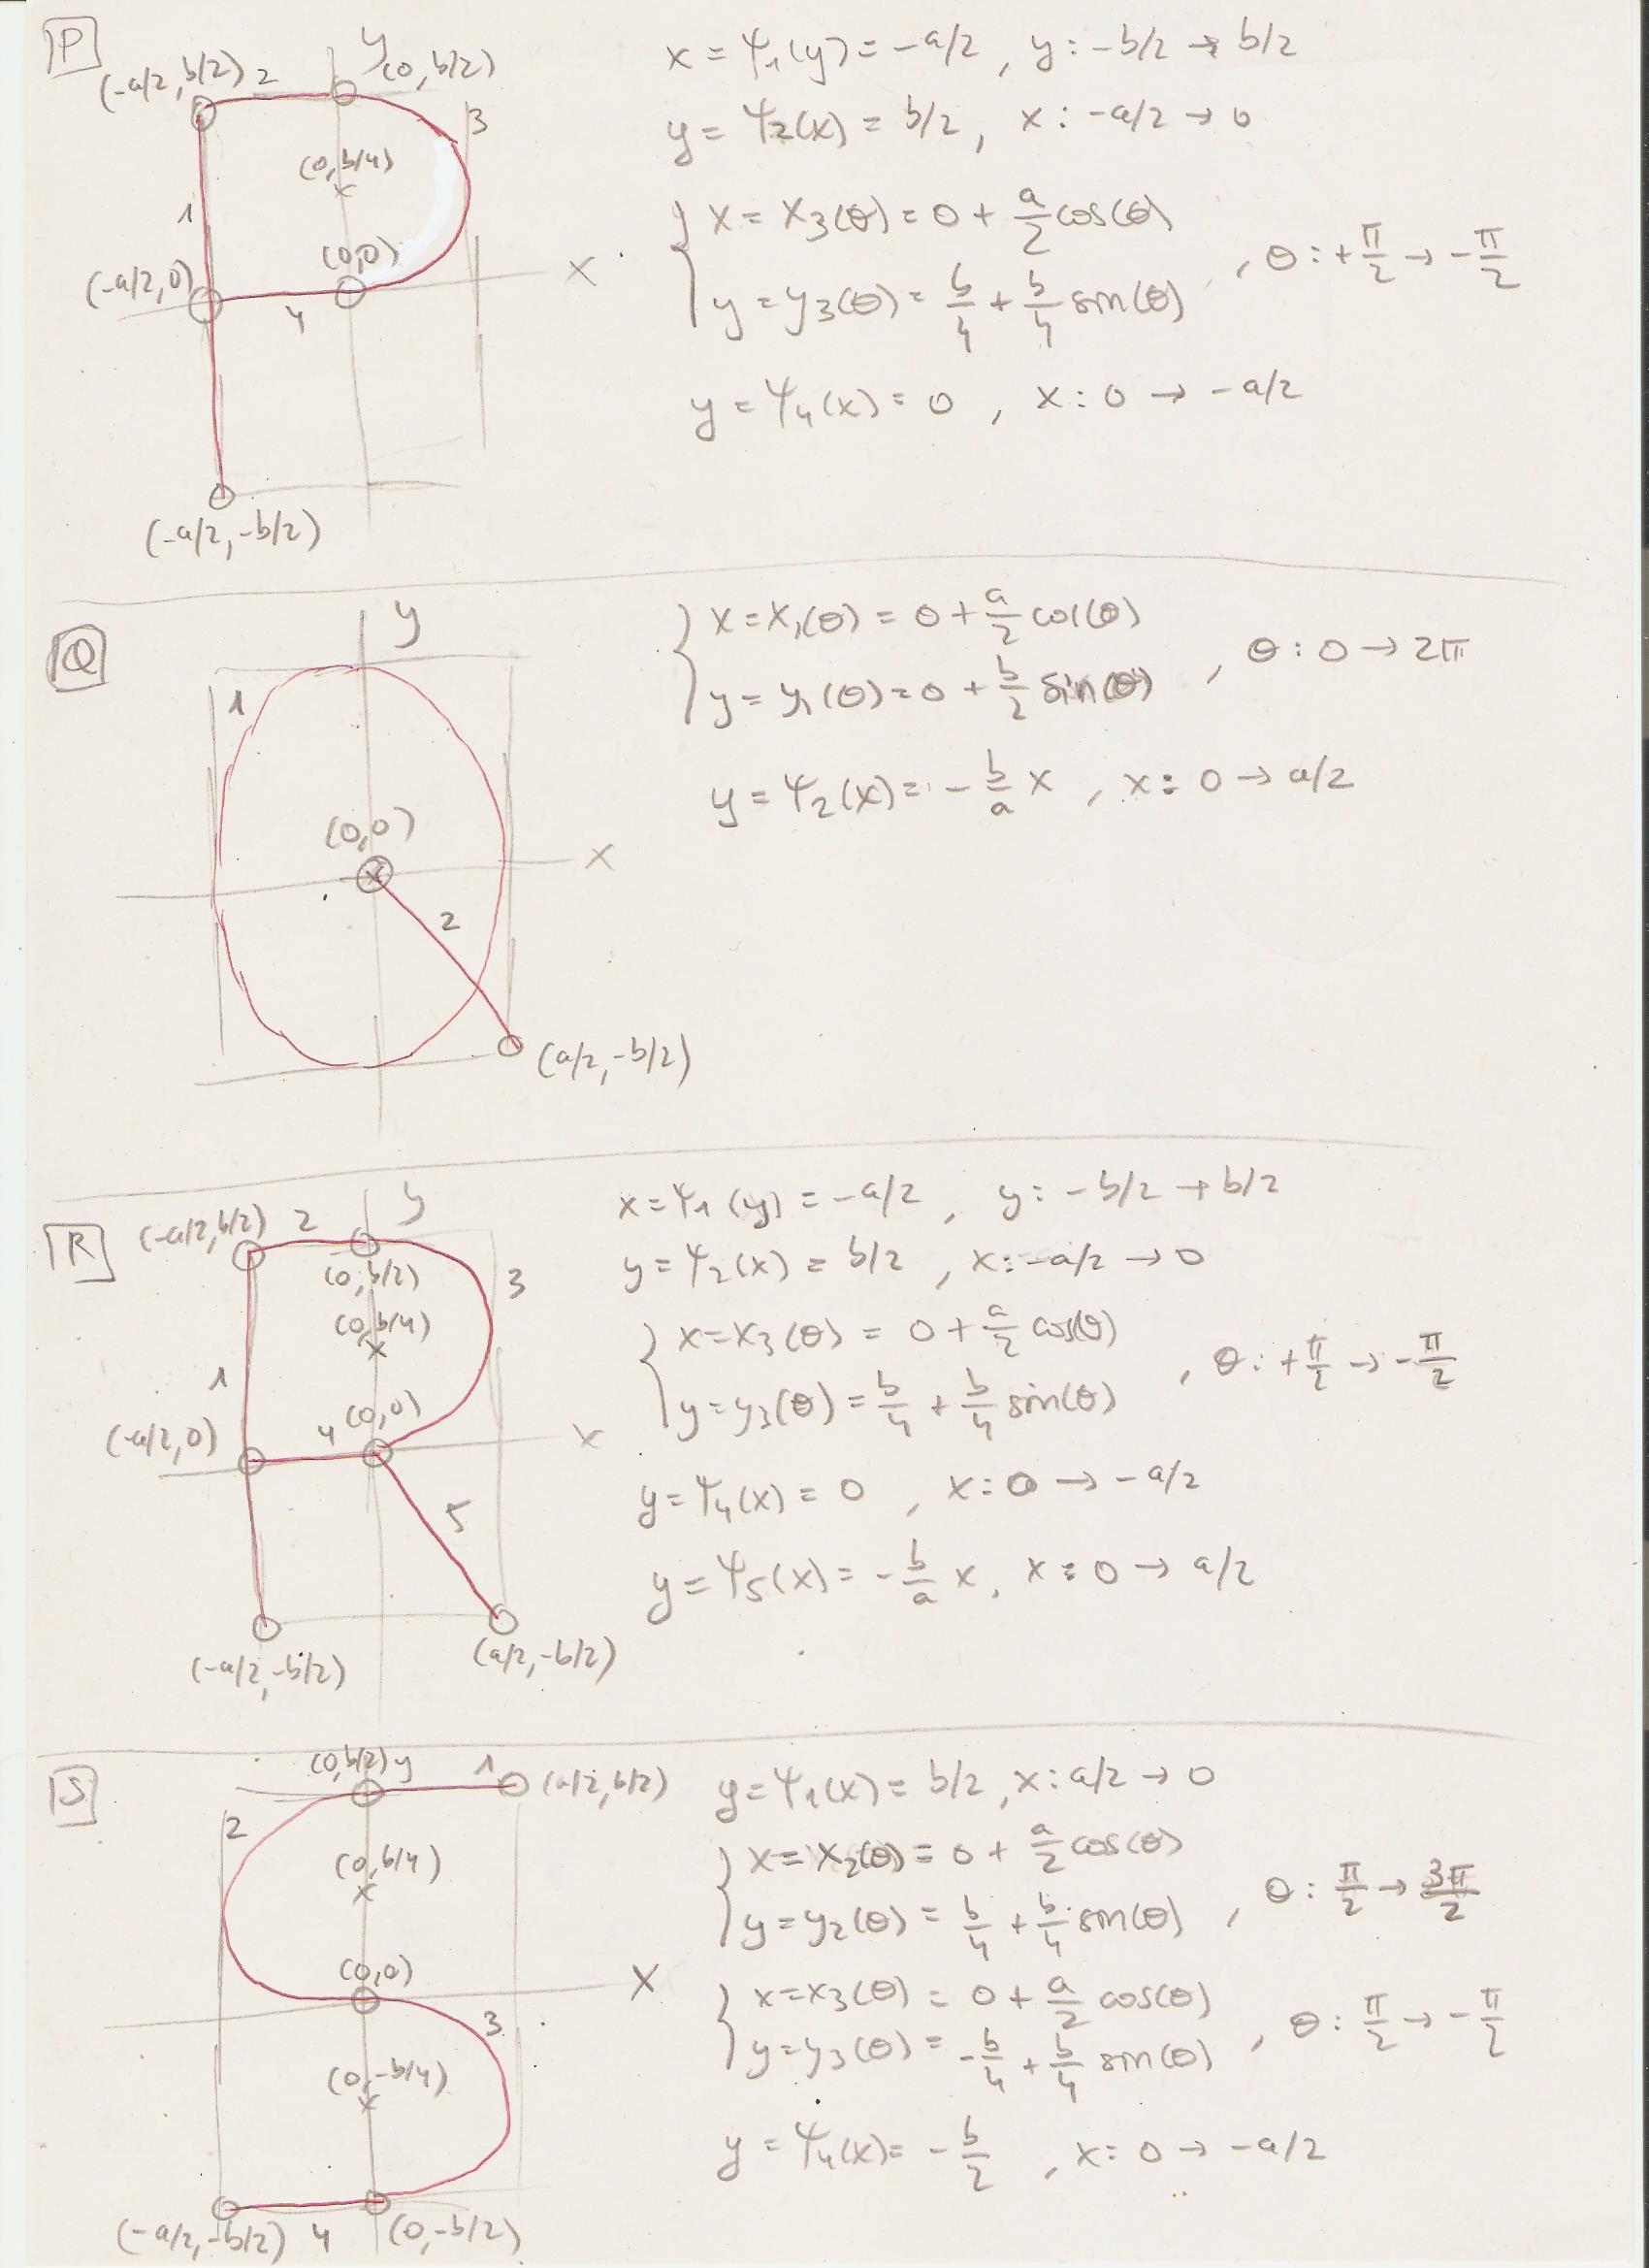 P
y
(-a/2, b/2) 2 (0, b/2)
3
(0, b/4)
1
(0,0)
(-a/2, 0)
x
4
(-a/2, -b/2)
x = Ψ₁(y) = -a/2 , y : -b/2 → b/2
y = Ψ₂(x) = b/2 , x : -a/2 → 0
{ x = x₃(θ) = 0 + a/2 cos(θ)
y = y₃(θ) = b/4 + b/4 sin(θ) , θ : +π/2 → -π/2
y = Ψ₄(x) = 0 , x : 0 → -a/2
Q
y
1
(0,0)
x
2
(a/2, -b/2)
{ x = x₁(θ) = 0 + a/2 cos(θ)
y = y₁(θ) = 0 + b/2 sin(θ) , θ : 0 → 2π
y = Ψ₂(x) = - b/a x , x : 0 → a/2
R
y
(-a/2, b/2) 2
(0, b/2)
3
(0, b/4)
1
(0,0)
4
(-a/2, 0)
x
5
(-a/2, -b/2)
(a/2, -b/2)
x = Ψ₁(y) = -a/2 , y : -b/2 → b/2
y = Ψ₂(x) = b/2 , x : -a/2 → 0
{ x = x₃(θ) = 0 + a/2 cos(θ)
y = y₃(θ) = b/4 + b/4 sin(θ) , θ : +π/2 → -π/2
y = Ψ₄(x) = 0 , x : 0 → -a/2
y = Ψ₅(x) = - b/a x , x : 0 → a/2
S
(0, b/2) y
1
(a/2, b/2)
2
(0, b/4)
(0,0)
x
3
(0, -b/4)
(-a/2, -b/2) 4 (0, -b/2)
y = Ψ₁(x) = b/2 , x : a/2 → 0
{ x = x₂(θ) = 0 + a/2 cos(θ)
y = y₂(θ) = b/4 + b/4 sin(θ) , θ : π/2 → 3π/2
{ x = x₃(θ) = 0 + a/2 cos(θ)
y = y₃(θ) = -b/4 + b/4 sin(θ) , θ : π/2 → -π/2
y = Ψ₄(x) = - b/2 , x : 0 → -a/2